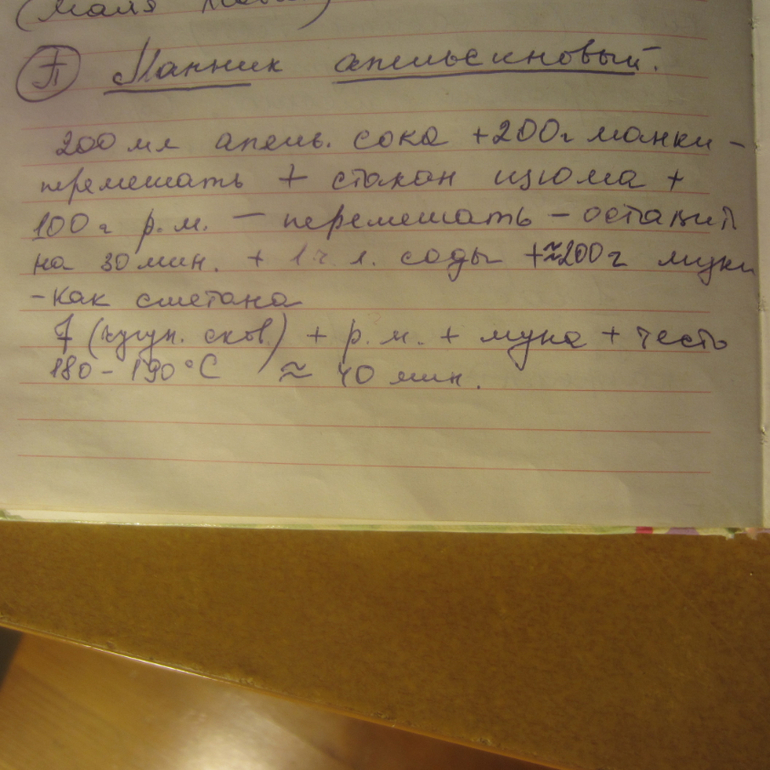 (Маля
П Манник апельсиновый.
200 мл апель. сока +200г манки -
перемешать + стакан изюма +
100 г р.м. - перемешать - оставить
на 30 мин. + 1 ч. л. соды +≈200г муки
- как сметана
(чугун. сков.) + р.м. + мука + тесто
180 - 190°C ≈ 40 мин.